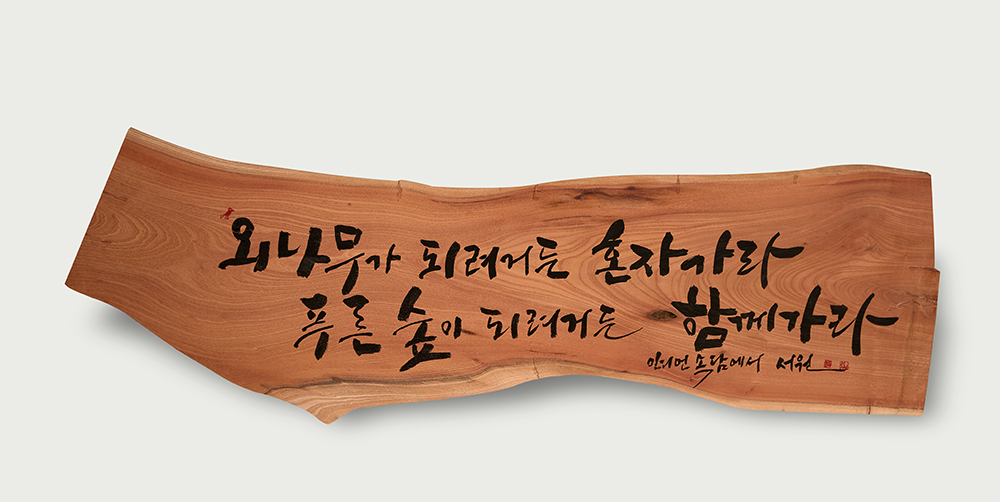 외나무가 되려거든 혼자가라
푸른 숲이 되려거든 함께가라
인디언 속담에서 서원